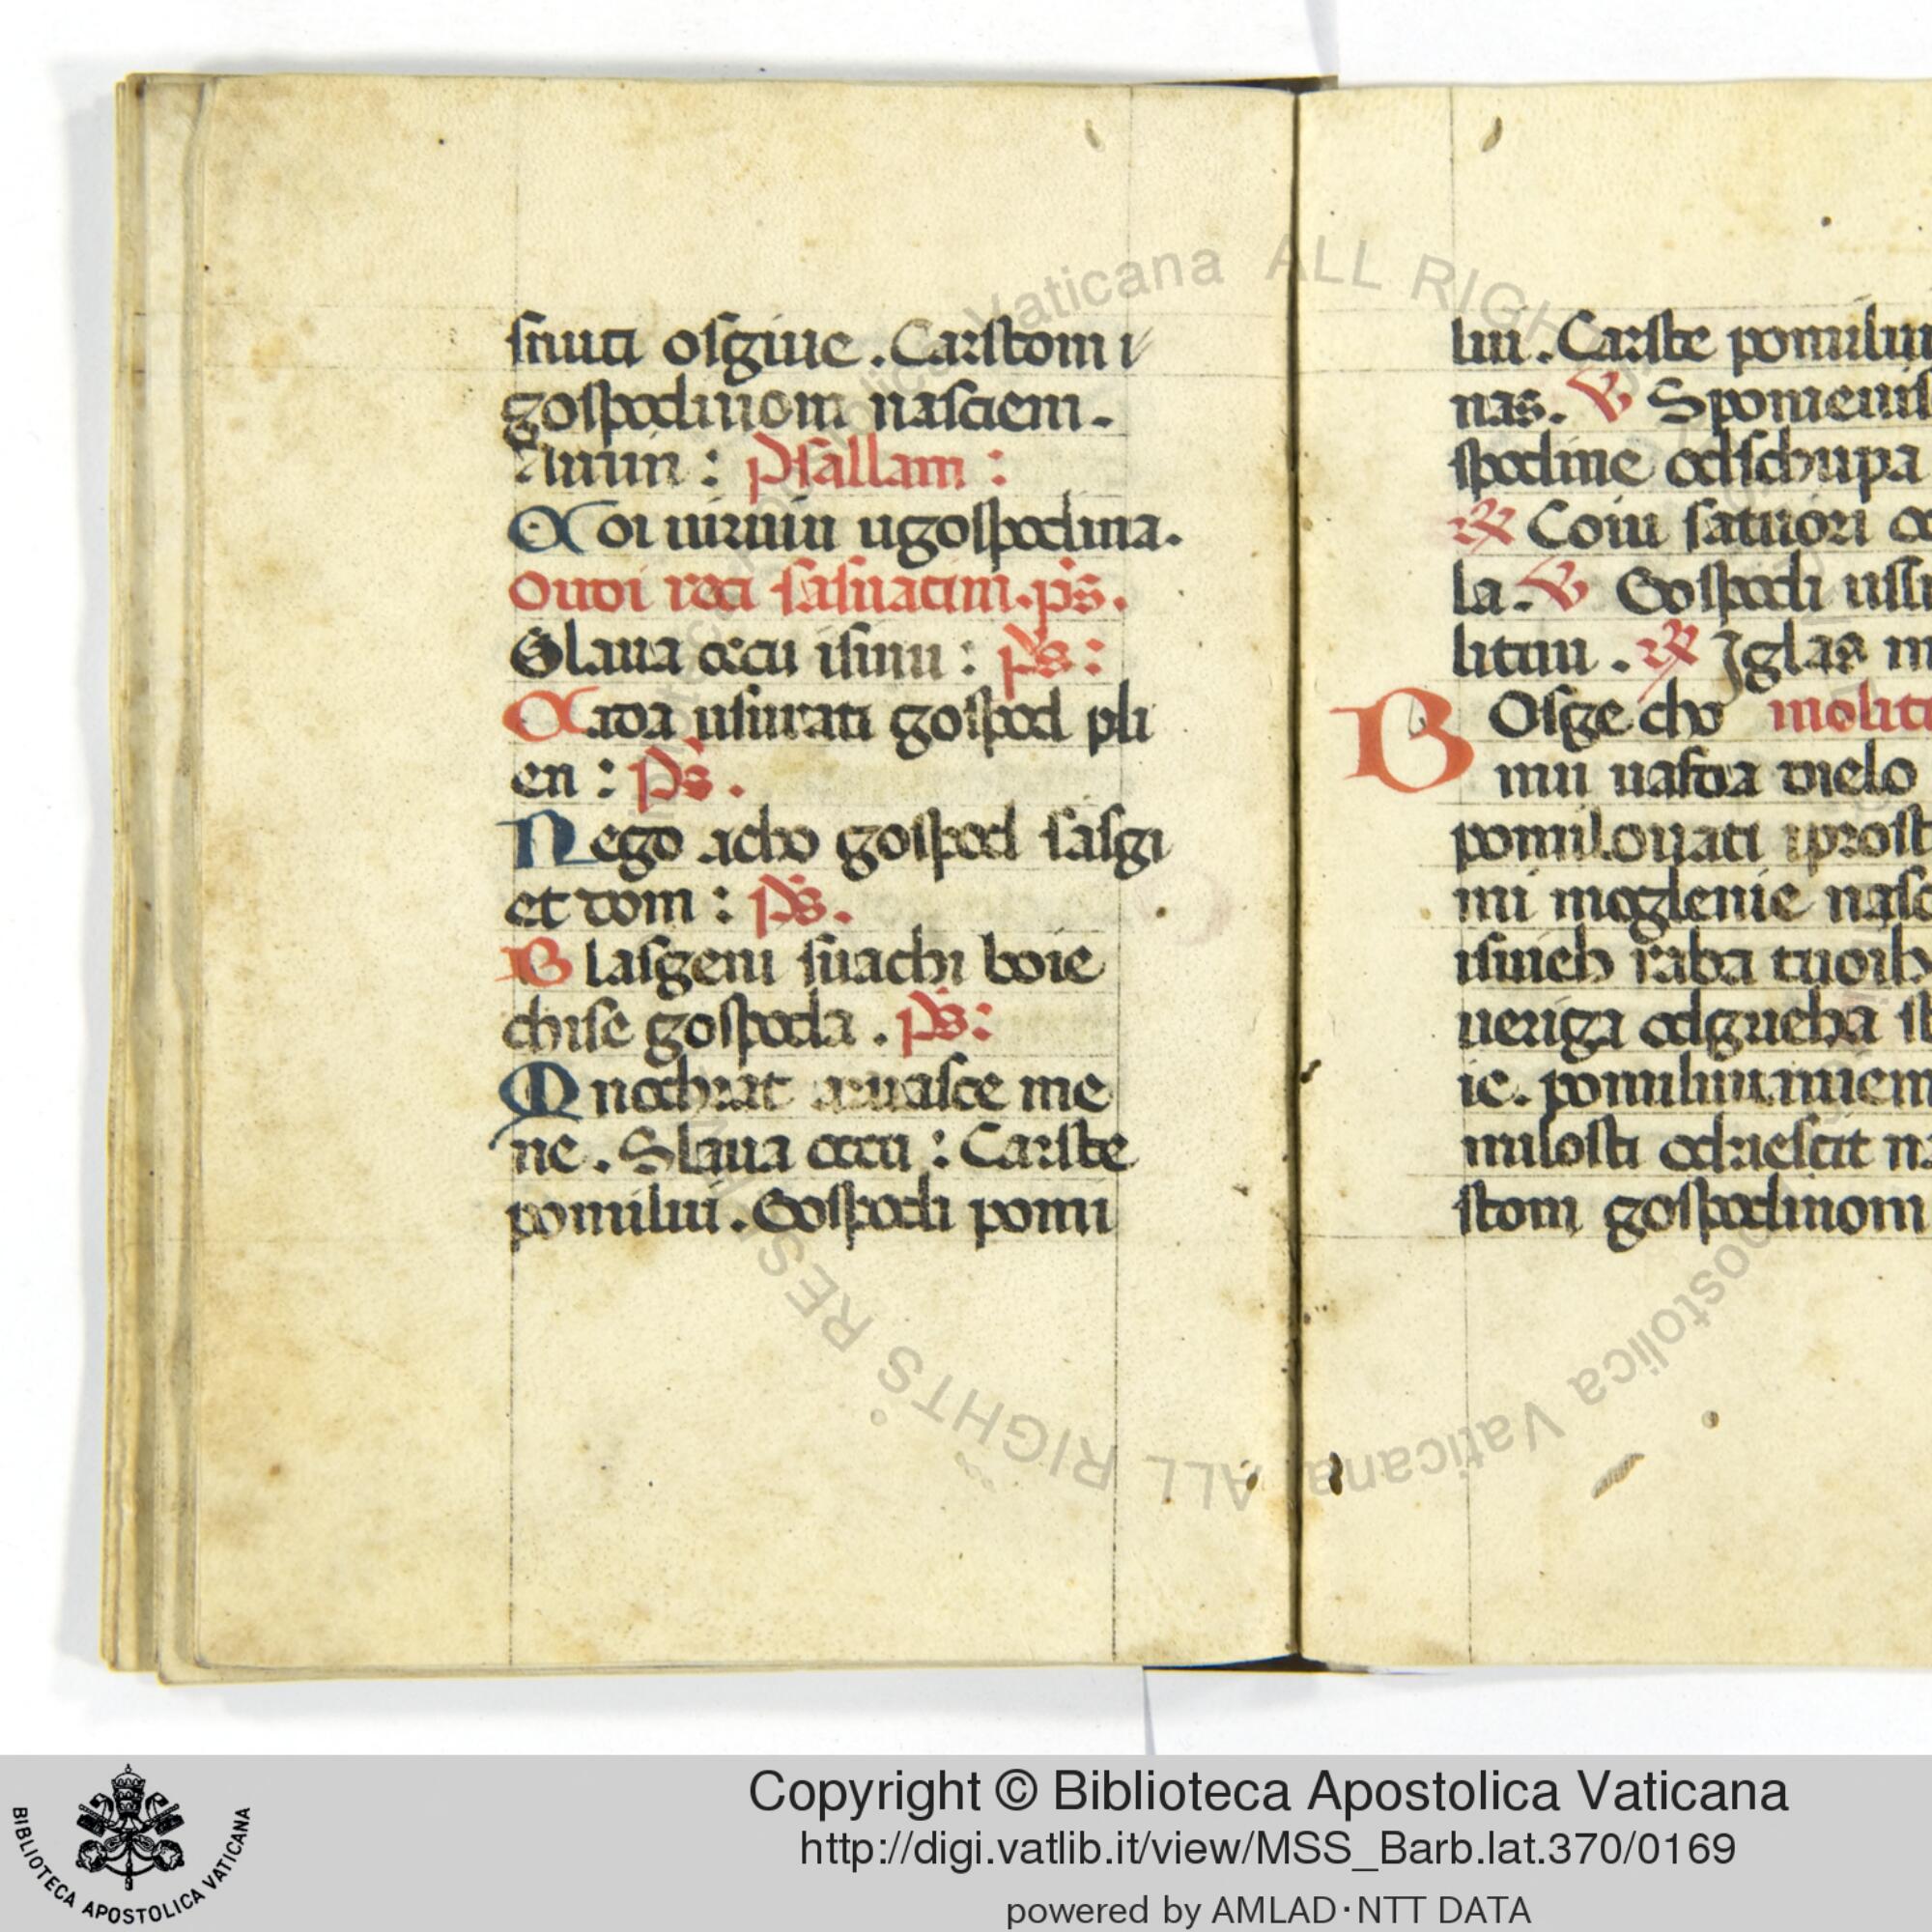 snuti osgiue. Carstom i
gospodinom nasciem.
Amin : Psallam :
Doi uiruiu ugospodina.
Ouoi reci sasuacim. ps.
Slaua occu isinu : ps:
Dada usiurati gospod pli
en : Ps.
Nego acho gospod sasgi
et dom : Ps.
Blasgeni suachi boie
chise gospoda. Ps:
Mnochrat aruasce me
ne. Slaua occu : Carste
pomilui. Gospodi pomi
lui. Carste pomilui
nas. V Spomenis
spodine odschupa
R Coiu satuori
la. V Gospodi
litiui. R Iglas
Bosge cho moliti
mu uasda dielo
pomilouati iprost
mi moglenie
isinieh raba tuoih
ueriga odgrieha
ie. pomilui
milosti odriescit
stom gospodinom
ALL RIGHTS RESERVED
Biblioteca Apostolica Vaticana
BIBLIOTECA APOSTOLICA VATICANA
Copyright © Biblioteca Apostolica Vaticana
http://digi.vatlib.it/view/MSS_Barb.lat.370/0169
powered by AMLAD·NTT DATA